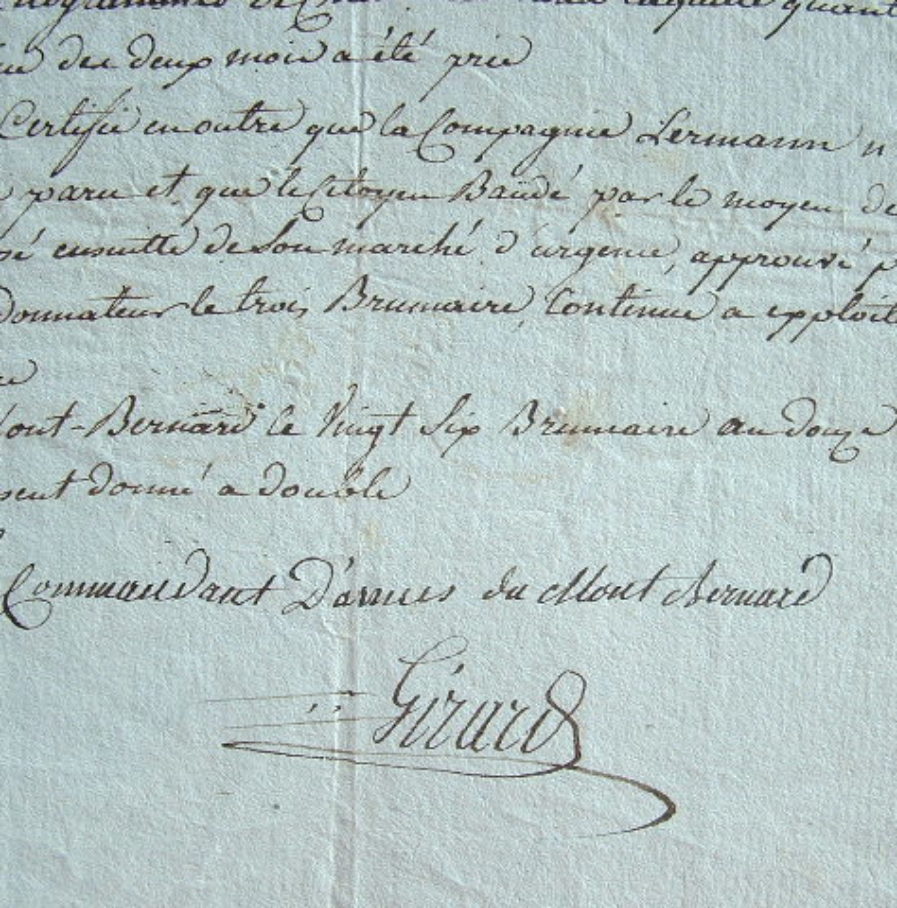 quant
des deux mois a été prie
Certifie en outre que la Compagnie Lermann n
paru et que le Citoyen Baudé par le moyen de
sé ensuitte de son marché d'urgence, approuvé p
donnateur le trois Brumaire, Continue a exploit
ont-Bernard le Vingt Six Brumaire an douze
sent donné a double
Commandant D'armes du Mont Bernard
Girard